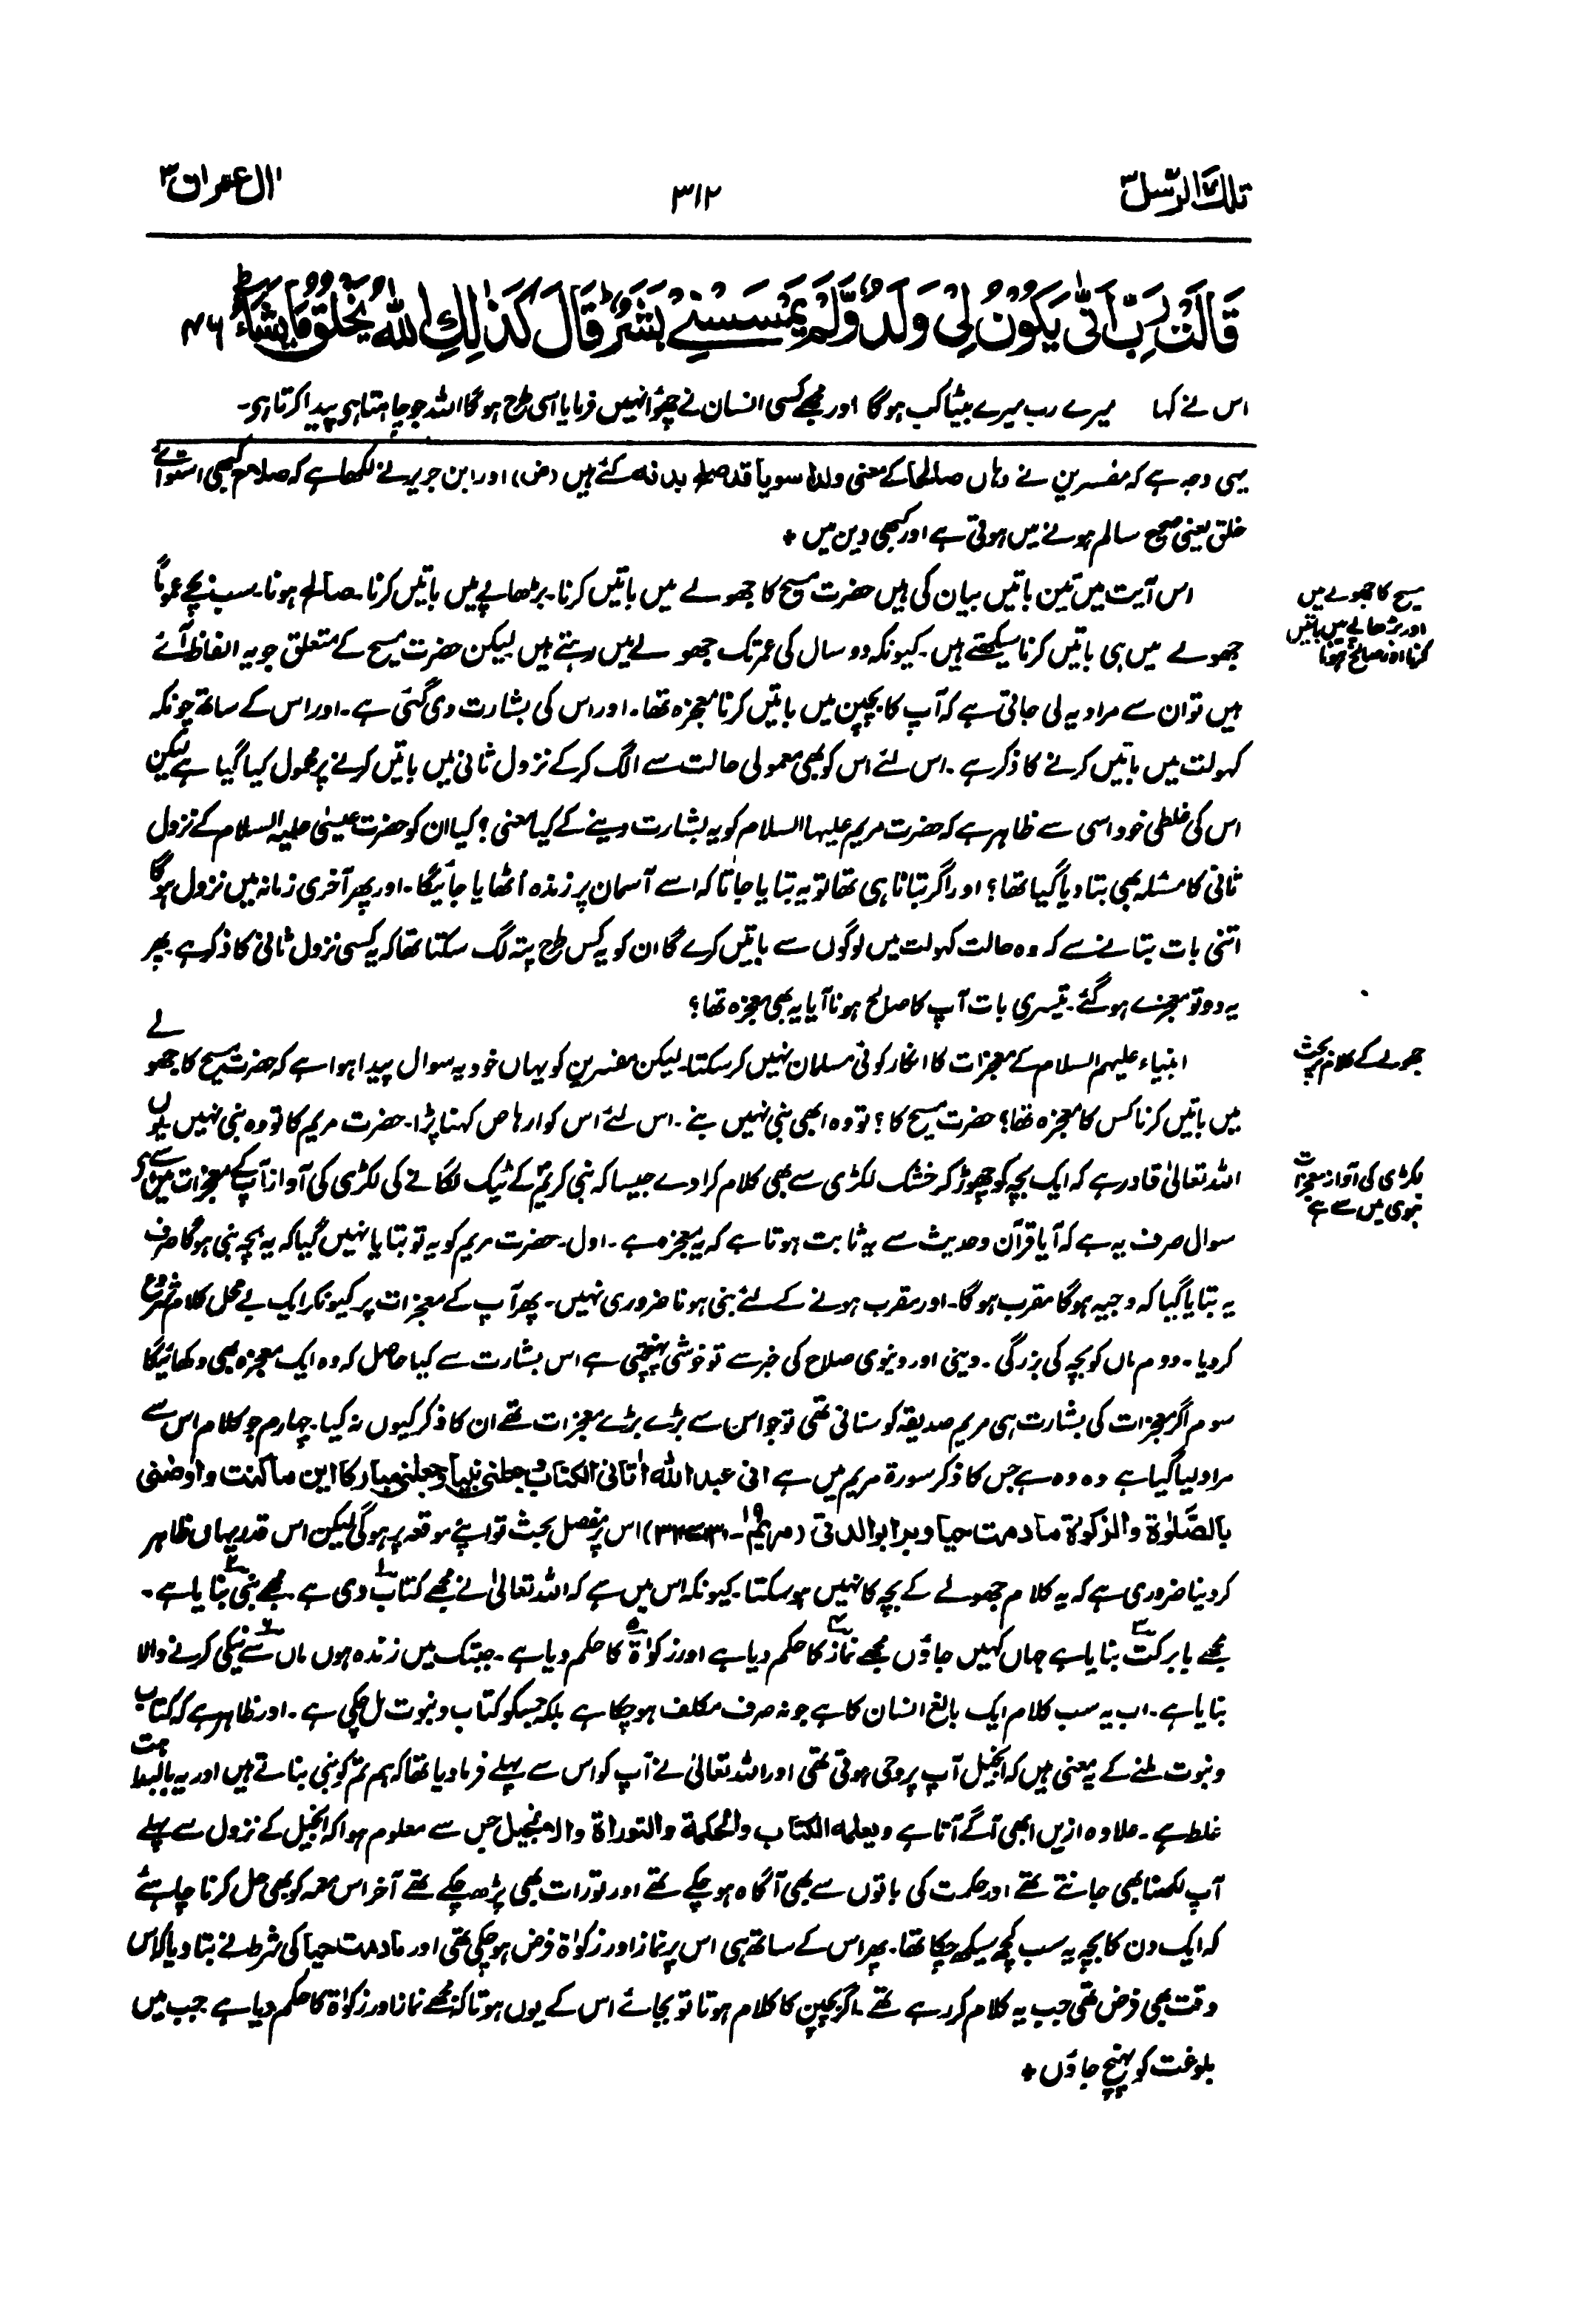 تلك الرسل ۳
۳۱۲
اٰل عمران ۳
قَالَتْ رَبِّ اَنّٰى يَكُوْنُ لِىْ وَلَدٌ وَّلَمْ يَمْسَسْنِىْ بَشَرٌ ؕ قَالَ كَذٰلِكِ اللّٰهُ يَخْلُقُ مَا يَشَآءُ ؕ ۴۶
اس نے کہا میرے رب میرے بیٹا کب ہوگا اور مجھے کسی انسان نے چھؤا نہیں فرمایا اسی طرح ہوگا اللہ جو چاہتا ہی پیدا کرتا ہی۔
یہی وجہ ہے کہ مفسرین نے وہاں صالحا کے معنی ولدا سویا قد صلح بدنه کئے ہیں (ض) اور ابن جریر نے لکھا ہے کہ صلاح کبھی استوائے
خلق یعنی صحیح سالم ہونے میں ہوتی ہے اور کبھی دین میں +
مسیح کا جھولے میں
اور بڑھاپے میں باتیں
کرنا اور صالح ہونا
اس آیت میں تین باتیں بیان کی ہیں حضرت مسیح کا جھولے میں باتیں کرنا۔ بڑھاپے میں باتیں کرنا۔ صالح ہونا۔ سب بچے عموماً
جھولے میں ہی باتیں کرنا سیکھتے ہیں۔ کیونکہ دو سال کی عمر تک جھولے میں رہتے ہیں لیکن حضرت مسیح کے متعلق جو یہ الفاظ آئے
ہیں تو ان سے مراد یہ لی جاتی ہے کہ آپ کا بچپن میں باتیں کرنا معجزہ تھا۔ اور اس کی بشارت دی گئی ہے۔ اور اس کے ساتھ چونکہ
کہولت میں باتیں کرنے کا ذکر ہے۔ اس لئے اس کو بھی معمولی حالت سے الگ کر کے نزول ثانی میں باتیں کرنے پر محمول کیا گیا ہے لیکن
اس کی غلطی خود اسی سے ظاہر ہے کہ حضرت مریم علیہا السلام کو یہ بشارت دینے کے کیا معنی؟ کیا ان کو حضرت عیسیٰ علیہ السلام کے نزول
ثانی کا مسئلہ بھی بتا دیا گیا تھا؟ اور اگر بتانا ہی تھا تو یہ بتایا جاتا کہ اسے آسمان پر زندہ اُٹھایا جائیگا۔ اور پھر آخری زمانہ میں نزول ہوگا
اتنی بات بتانے سے کہ وہ حالت کہولت میں لوگوں سے باتیں کرے گا ان کو یہ کس طرح پتہ لگ سکتا تھا کہ یہ کسی نزول ثانی کا ذکر ہے۔ پھر
یہ دو تو معجزے ہو گئے۔ تیسری بات آپ کا صالح ہونا آیا یہ بھی معجزہ تھا؟
جھولے کے کلام پر بحث
انبیاء علیہم السلام کے معجزات کا انکار کوئی مسلمان نہیں کر سکتا۔ لیکن مفسرین کو یہاں خود یہ سوال پیدا ہوا ہے کہ حضرت مسیح کا جھولے
میں باتیں کرنا کس کا معجزہ تھا؟ حضرت مسیح کا؟ تو وہ ابھی نبی نہیں بنے۔ اس لئے اس کو ارہاص کہنا پڑا۔ حضرت مریم کا تو وہ نبی نہیں۔ یوں
لکڑی کی آواز معجزات
نبوی میں سے ہے
اللہ تعالیٰ قادر ہے کہ ایک بچہ کو چھوڑ کر خشک لکڑی سے بھی کلام کرا دے جیسا کہ نبی کریمؐ کے ٹیک لگانے کی لکڑی کی آواز آپ کے معجزات میں سے ہے
سوال صرف یہ ہے کہ آیا قرآن وحدیث سے یہ ثابت ہوتا ہے کہ یہ معجزہ ہے۔ اول۔ حضرت مریم کو یہ تو بتایا نہیں گیا کہ یہ بچہ نبی ہوگا صرف
یہ بتایا گیا کہ وجیہ ہوگا مقرب ہوگا۔ اور مقرب ہونے کے لئے نبی ہونا ضروری نہیں۔ پھر آپ کے معجزات پر کیونکر ایک بے محل کلام شروع
کر دیا۔ دوم ماں کو بچہ کی بزرگی۔ دینی اور دنیوی صلاح کی خبر سے تو خوشی پہنچتی ہے اس بشارت سے کیا حاصل کہ وہ ایک معجزہ بھی دکھائیگا
سوم اگر معجزات کی بشارت ہی مریم صدیقہ کو سنانی تھی تو جو اس سے بڑے بڑے معجزات تھے ان کا ذکر کیوں نہ کیا۔ چہارم جو کلام اس سے
مراد لیا گیا ہے وہ وہ ہے جس کا ذکر سورۃ مریم میں ہے انی عبد اللہ اٰتانی الکتاب وجعلنی نبیا وجعلنی مبارکا این ما کنت واوصٰنی
بالصّلٰوة والزکوٰة ما دمت حیا وبرا بوالدتی (مریم ۱۹۔ ۳۰ تا ۳۲) اس پر مفصل بحث تو اپنے موقعہ پر ہوگی لیکن اس قدر یہاں ظاہر
کر دینا ضروری ہے کہ یہ کلام جھولے کے بچہ کا نہیں ہو سکتا۔ کیونکہ اس میں ہے کہ اللہ تعالیٰ نے مجھے کتاب دی ہے۔ مجھے نبی بنایا ہے۔
مجھے بابرکت بنایا ہے جہاں کہیں جاؤں مجھے نماز کا حکم دیا ہے اور زکوٰۃ کا حکم دیا ہے۔ جبتک میں زندہ ہوں ماں سے نیکی کرنے والا
بنایا ہے۔ اب یہ سب کلام ایک بالغ انسان کا ہے جو نہ صرف مکلف ہو چکا ہے بلکہ جسکو کتاب و نبوت مل چکی ہے۔ اور ظاہر ہے کہ کتاب
و نبوت ملنے کے یہ معنی ہیں کہ انجیل آپ پر وحی ہوتی تھی اور اللہ تعالیٰ نے آپ کو اس سے پہلے فرما دیا تھا کہ ہم تم کو نبی بناتے ہیں اور یہ بالبداہت
غلط ہے۔ علاوہ ازیں ابھی آگے آتا ہے ویعلمه الکتاب والحکمة والتوراة والانجیل جس سے معلوم ہوا کہ انجیل کے نزول سے پہلے
آپ لکھنا بھی جانتے تھے اور حکمت کی باتوں سے بھی آگاہ ہو چکے تھے اور تورات بھی پڑھ چکے تھے آخر اس معمہ کو بھی حل کرنا چاہئے
کہ ایک دن کا بچہ یہ سب کچھ سیکھ چکا تھا۔ پھر اس کے ساتھ ہی اس پر نماز اور زکوٰۃ فرض ہو چکی تھی اور ما دمت حیا کی شرط نے بتا دیا کہ اس
وقت بھی فرض تھی جب یہ کلام کر رہے تھے۔ اگر بچپن کا کلام ہوتا تو بجائے اس کے یوں ہوتا کہ مجھے نماز اور زکوٰۃ کا حکم دیا ہے جب میں
بلوغت کو پہنچ جاؤں +